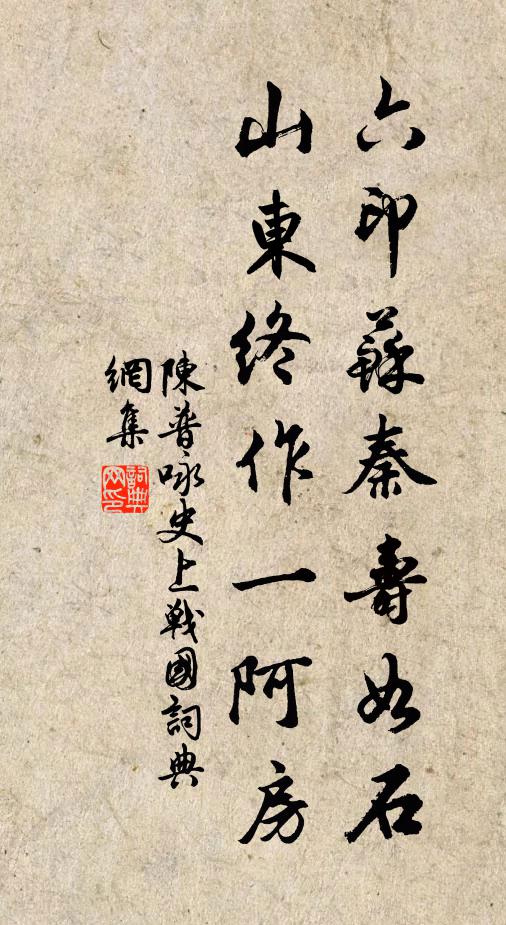 六印蘇秦壽如石
山東終作一阿房
陳普咏史上戰國詞典
網集
詞典
网印